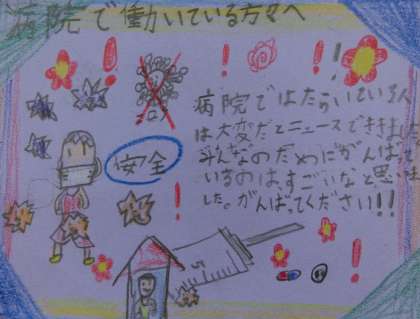 病院で働いている方々へ
コロナ
病院ではたらいている人
は大変だとニュースでききました
みんなのためにがんばって
いるのはすごいなと思いま
した。がんばってください!!
安全